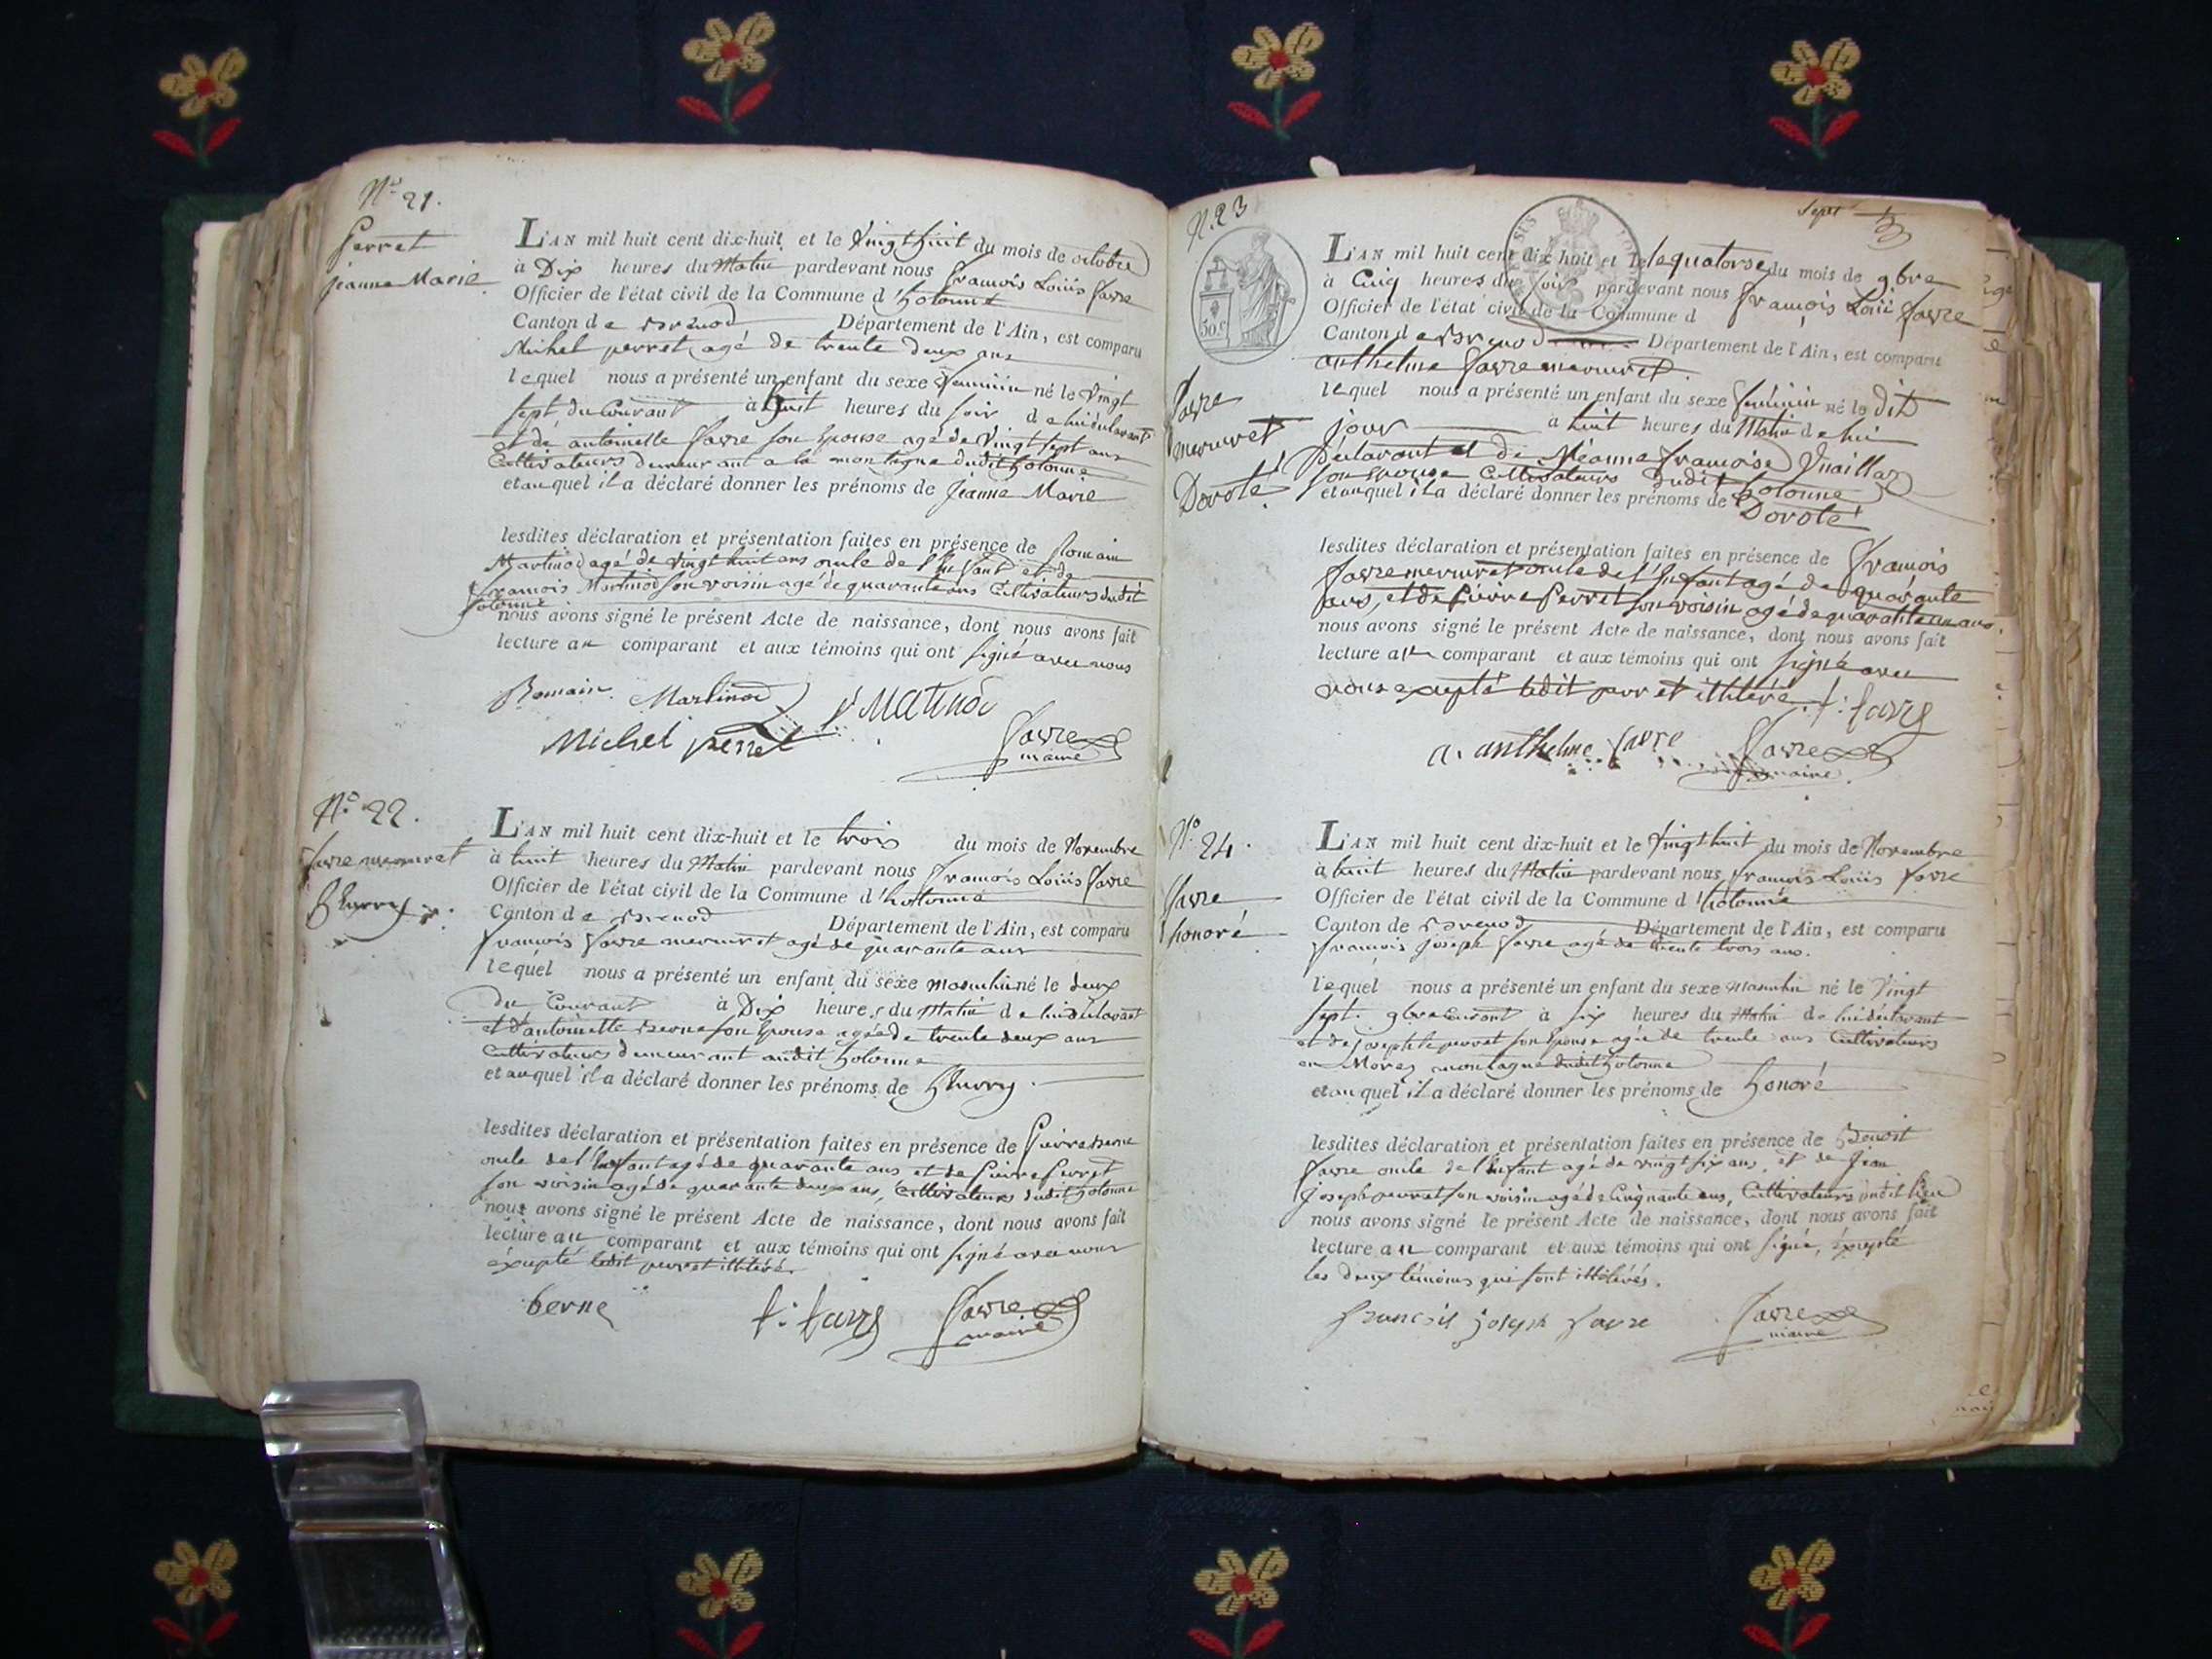 N.o 21.
perret
jeanne Marie
L'AN mil huit cent dix-huit et le vingt huit du mois de octobre
à Dix heures du Matin pardevant nous françois Loüis favre
Officier de l'état civil de la Commune d'hotonne
Canton de Brenod Département de l'Ain, est comparu
Michel perret agé de trente deux ans
lequel nous a présenté un enfant du sexe feminin né le vingt
sept du Courant à huit heures du soir de lui déclarant
et de antoinette favre son Epouse agé de vingt sept ans
Cultivateurs demeurant a la montagne dudit hotonne
et auquel il a déclaré donner les prénoms de Jeanne Marie
lesdites déclaration et présentation faites en présence de Romain
Martinod agé de vingt huit ans oncle de l'Enfant et de
françois Martinod son voisin agé de quarante ans Cultivateurs dudit
hotonne
nous avons signé le présent Acte de naissance, dont nous avons fait
lecture au comparant et aux témoins qui ont signé avec nous
Romain Martinod f Matinod
Michel perret favre
maire
N.o 22.
favre mermet
Thurry
L'AN mil huit cent dix-huit et le trois du mois de Novembre
à huit heures du Matin pardevant nous françois Loüis favre
Officier de l'état civil de la Commune d'hotonne
Canton de Brenod Département de l'Ain, est comparu
françois favre mermet agé de quarante ans
lequel nous a présenté un enfant du sexe masculin né le deux
du Courant à Dix heures du Matin de lui déclarant
et d'antoinette Berne son Epouse agée de trente deux ans
Cultivateurs demeurant audit hotonne
et auquel il a déclaré donner les prénoms de Thurry
lesdites déclaration et présentation faites en présence de Pierre Berne
oncle de l'Enfant agé de quarante ans et de Pierre Perret
son voisin agé de quarante deux ans, Cultivateurs dudit hotonne
nous avons signé le présent Acte de naissance, dont nous avons fait
lecture au comparant et aux témoins qui ont signé avec nous
éxcepté ledit perret illitéré.
berne f: favre favre
maire
N. 23
30 c
favre
mermet
Doroté
L'AN mil huit cent dix-huit et le le quatorse du mois de 9bre
à Cinq heures du soir pardevant nous françois Loüis favre
Officier de l'état civil de la Commune d
Canton de Brenod Département de l'Ain, est comparu
anthelme favre mermet
lequel nous a présenté un enfant du sexe feminin né le dit
jour à huit heures du Matin de lui
Déclarant et de Méanne françoise Vuaillaz
son epouse Cultivateurs dudit hotonne
et auquel il a déclaré donner les prénoms de Doroté
lesdites déclaration et présentation faites en présence de françois
favre mermet oncle de l'Enfant agé de quarante
ans, et de Pierre Perret son voisin agé de quarante un ans.
nous avons signé le présent Acte de naissance, dont nous avons fait
lecture au comparant et aux témoins qui ont signé avec
nous excepté ledit perret illitéré. f: favre
a. anthelme favre favre
maire
N.o 24.
favre
honoré
L'AN mil huit cent dix-huit et le vingt huit du mois de Novembre
à huit heures du Matin pardevant nous françois Loüis favre
Officier de l'état civil de la Commune d'hotonne
Canton de Brenod Département de l'Ain, est comparu
françois joseph favre agé de trente trois ans.
lequel nous a présenté un enfant du sexe masculin né le vingt
sept. 9bre courant à six heures du Matin de lui déclarant
et de josephte perret son Epouse agée de trente ans Cultivateurs
en Morez montagne dudit hotonne
et auquel il a déclaré donner les prénoms de honoré
lesdites déclaration et présentation faites en présence de Benoit
favre oncle de l'Enfant agé de vingt six ans, et de jean
joseph perret son voisin agé de Cinquante ans, Cultivateurs dudit lieu
nous avons signé le présent Acte de naissance, dont nous avons fait
lecture au comparant et aux témoins qui ont signé, éxcepté
les deux témoins qui sont illitérés.
françois joseph favre favre
maire